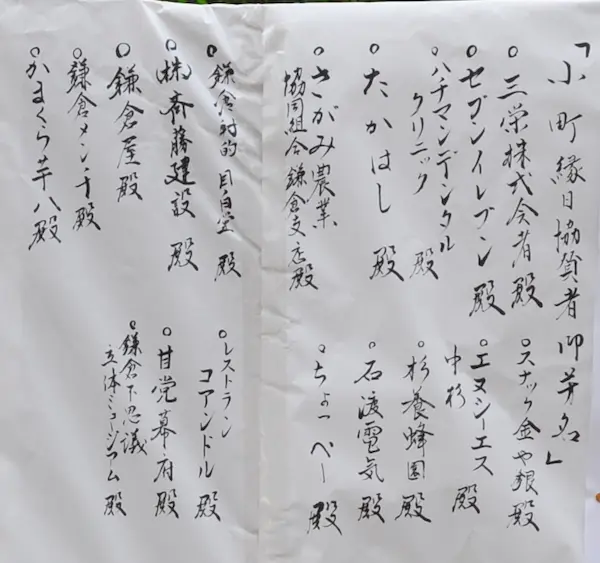 「小町縁日協賛者御芳名」
○三栄株式会社殿
○セブンイレブン殿
○ハチマンデンタル
クリニック 殿
○たかはし 殿
○さがみ農業
協同組合鎌倉支店殿
○鎌倉射的 目白堂 殿
○(株)斉藤建設 殿
○鎌倉屋殿
○鎌倉メンチ殿
○かまくら芋八殿
○スナック金や銀殿
○エヌシーエス
中杉 殿
○杉養蜂園殿
○石渡電気殿
○ちょっぺー殿
○レストラン
コアンドル殿
○甘党幕府殿
○鎌倉不思議
立体ミュージアム殿